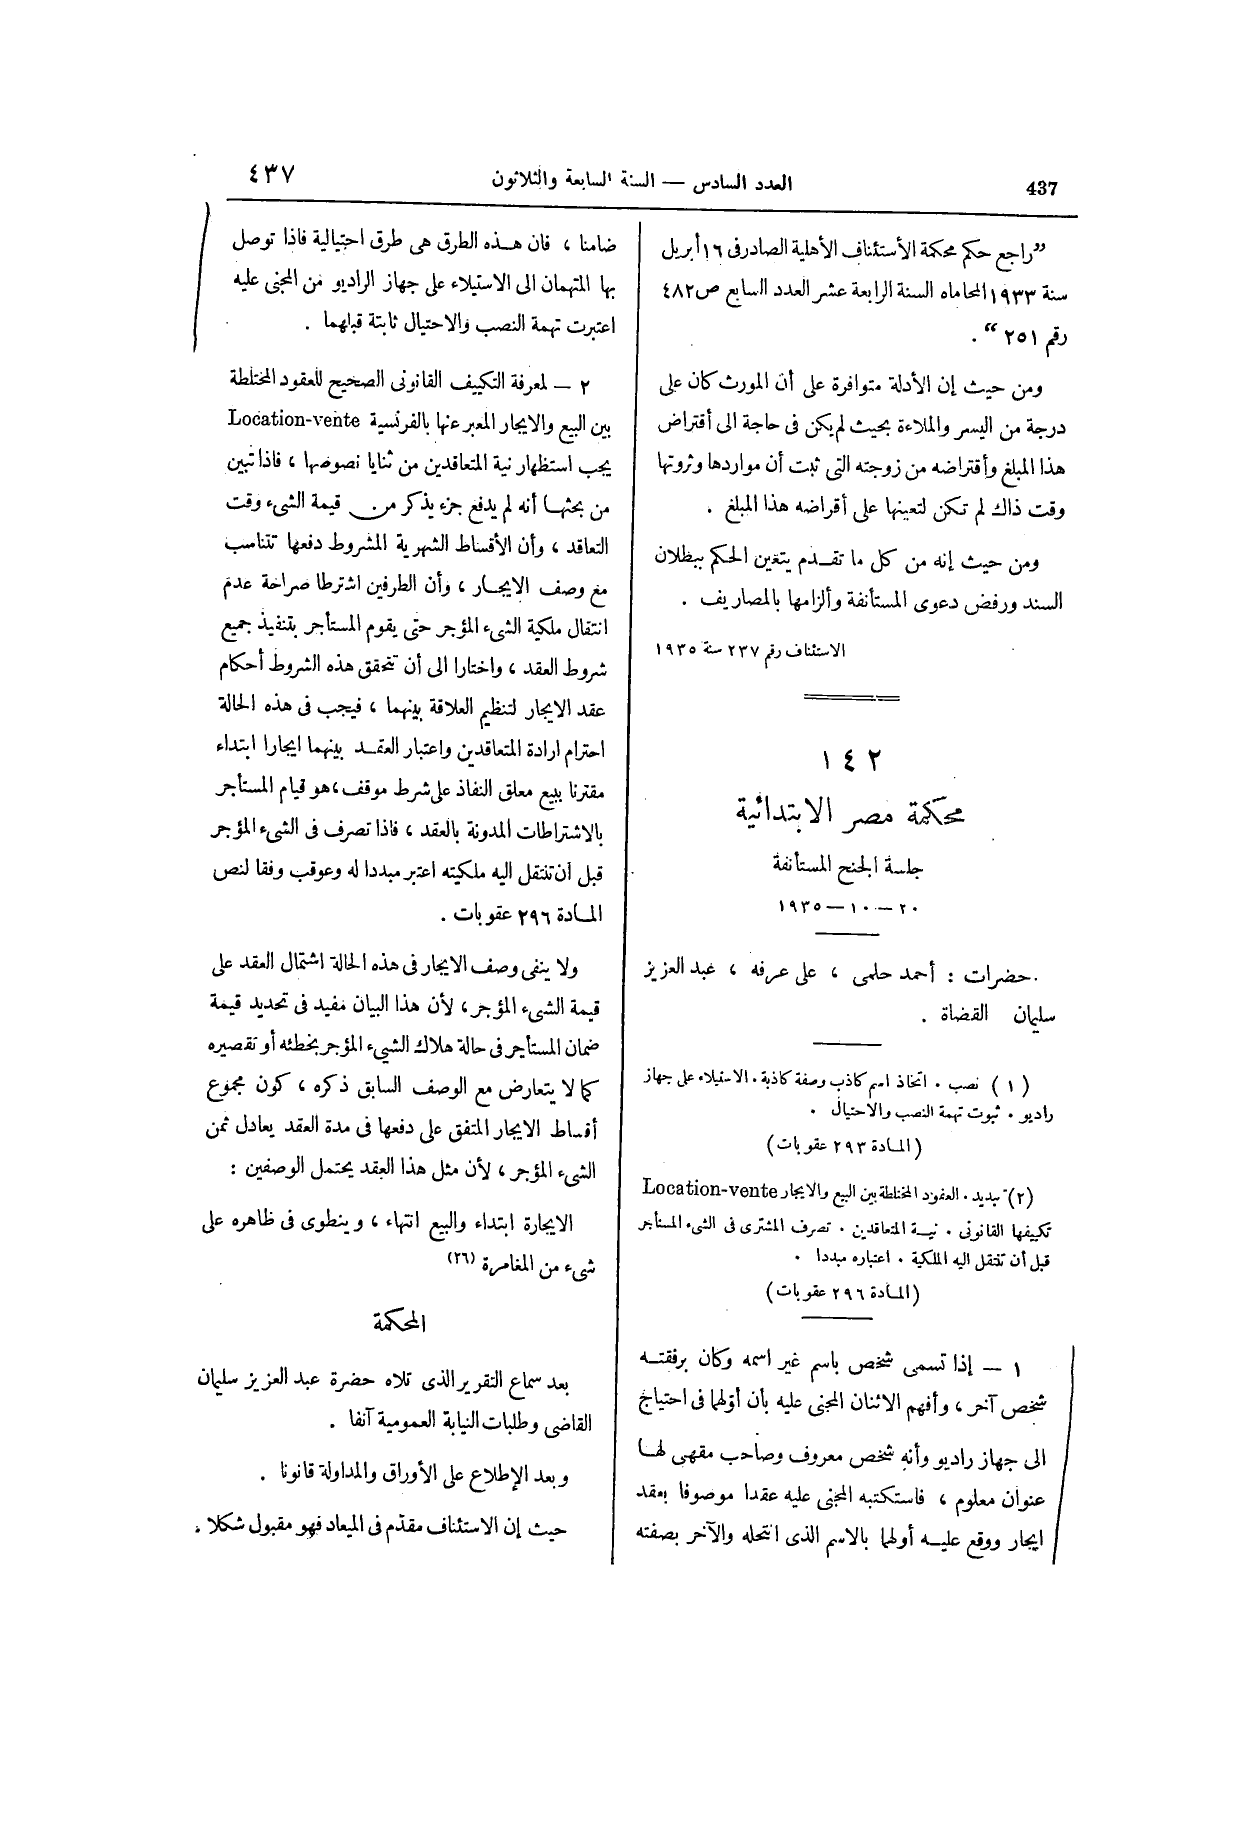 437
العدد السادس — السنة السابعة والثلاثون
٤٣٧
”راجع حكم محكمة الأستئناف الأهلية الصادر فى ١٦ أبريل
سنة ١٩٣٣ المحاماه السنة الرابعة عشر العدد السابع ص ٤٨٢
رقم ٢٥١“ .
ومن حيث إن الأدلة متوافرة على أن المورث كان على
درجة من اليسر والملاءة بحيث لم يكن فى حاجة الى أقتراض
هذا المبلغ وأقتراضه من زوجته التى ثبت أن مواردها وثروتها
وقت ذاك لم تكن لتعينها على أقراضه هذا المبلغ .
ومن حيث إنه من كل ما تقـدم يتعين الحكم ببطلان
السند ورفض دعوى المستأنفة وألزامها بالمصاريف .
الاستئناف رقم ٢٣٧ سنة ١٩٣٥
١٤٢
محكمة مصر الابتدائية
جلسة الجنح المستأنفة
٢٠ — ١٠ — ١٩٣٥
حضرات : أحمد حلمى ، على عرفه ، عبد العزيز
سليمان القضاة .
(١) نصب . اتخاذ اسم كاذب وصفة كاذبة . الاستيلاء على جهاز
راديو . ثبوت تهمة النصب والاحتيال .
(المـادة ٢٩٣ عقوبات)
(٢) تبديد . العقود المختلطة بين البيع والايجار Location-vente
تكييفها القانونى . نيـة المتعاقدين . تصرف المشترى فى الشىء المستأجر
قبل أن تنتقل اليه الملكية . اعتباره مبددا .
(المـادة ٢٩٦ عقوبات)
١ — إذا تسمى شخص باسم غير اسمه وكان برفقتـه
شخص آخر ، وأفهم الاثنان المجنى عليه بأن أولهما فى احتياج
الى جهاز راديو وأنه شخص معروف وصاحب مقهى لهـا
عنوان معلوم ، فاستكتبه المجنى عليه عقدا موصوفا بعقد
ايجار ووقع عليـه أولهما بالاسم الذى انتحله والآخر بصفته
ضامنا ، فان هـذه الطرق هى طرق احتيالية فاذا توصل
بها المتهمان الى الاستيلاء على جهاز الراديو من المجنى عليه
اعتبرت تهمة النصب والاحتيال ثابتة قبلهما .
٢ — لمعرفة التكييف القانونى الصحيح للعقود المختلطة
بين البيع والايجار المعبر عنها بالفرنسية Location-vente
يجب استظهار نية المتعاقدين من ثنايا نصوصها ، فاذا تبين
من بحثهـا أنه لم يدفع جزء يذكر من قيمة الشىء وقت
التعاقد ، وأن الأقساط الشهرية المشروط دفعها تتناسب
مع وصف الايجـار ، وأن الطرفين اشترطا صراحة عدم
انتقال ملكية الشىء المؤجر حتى يقوم المستأجر بتنفيذ جميع
شروط العقد ، واختارا الى أن تتحقق هذه الشروط أحكام
عقد الايجار لتنظيم العلاقة بينهما ، فيجب فى هذه الحالة
احترام ارادة المتعاقدين واعتبار العقـد بينهما ايجارا ابتداء
مقترنا ببيع معلق النفاذ على شرط موقف ، هو قيام المستأجر
بالاشتراطات المدونة بالعقد ، فاذا تصرف فى الشىء المؤجر
قبل أن تنتقل اليه ملكيته اعتبر مبددا له وعوقب وفقا لنص
المـادة ٢٩٦ عقوبات .
ولا ينفى وصف الايجار فى هذه الحالة اشتمال العقد على
قيمة الشىء المؤجر ، لأن هذا البيان مفيد فى تحديد قيمة
ضمان المستأجر فى حالة هلاك الشىء المؤجر بخطئه أو تقصيره
كما لا يتعارض مع الوصف السابق ذكره ، كون مجموع
أقساط الايجار المتفق على دفعها فى مدة العقد يعادل ثمن
الشىء المؤجر ، لأن مثل هذا العقد يحتمل الوصفين :
الايجارة ابتداء والبيع انتهاء ، وينطوى فى ظاهره على
شىء من المغامرة (٢٦)
المحكمة
بعد سماع التقرير الذى تلاه حضرة عبد العزيز سليمان
القاضى وطلبات النيابة العمومية آنفا .
وبعد الإطلاع على الأوراق والمداولة قانونا .
حيث إن الاستئناف مقدّم فى الميعاد فهو مقبول شكلا .